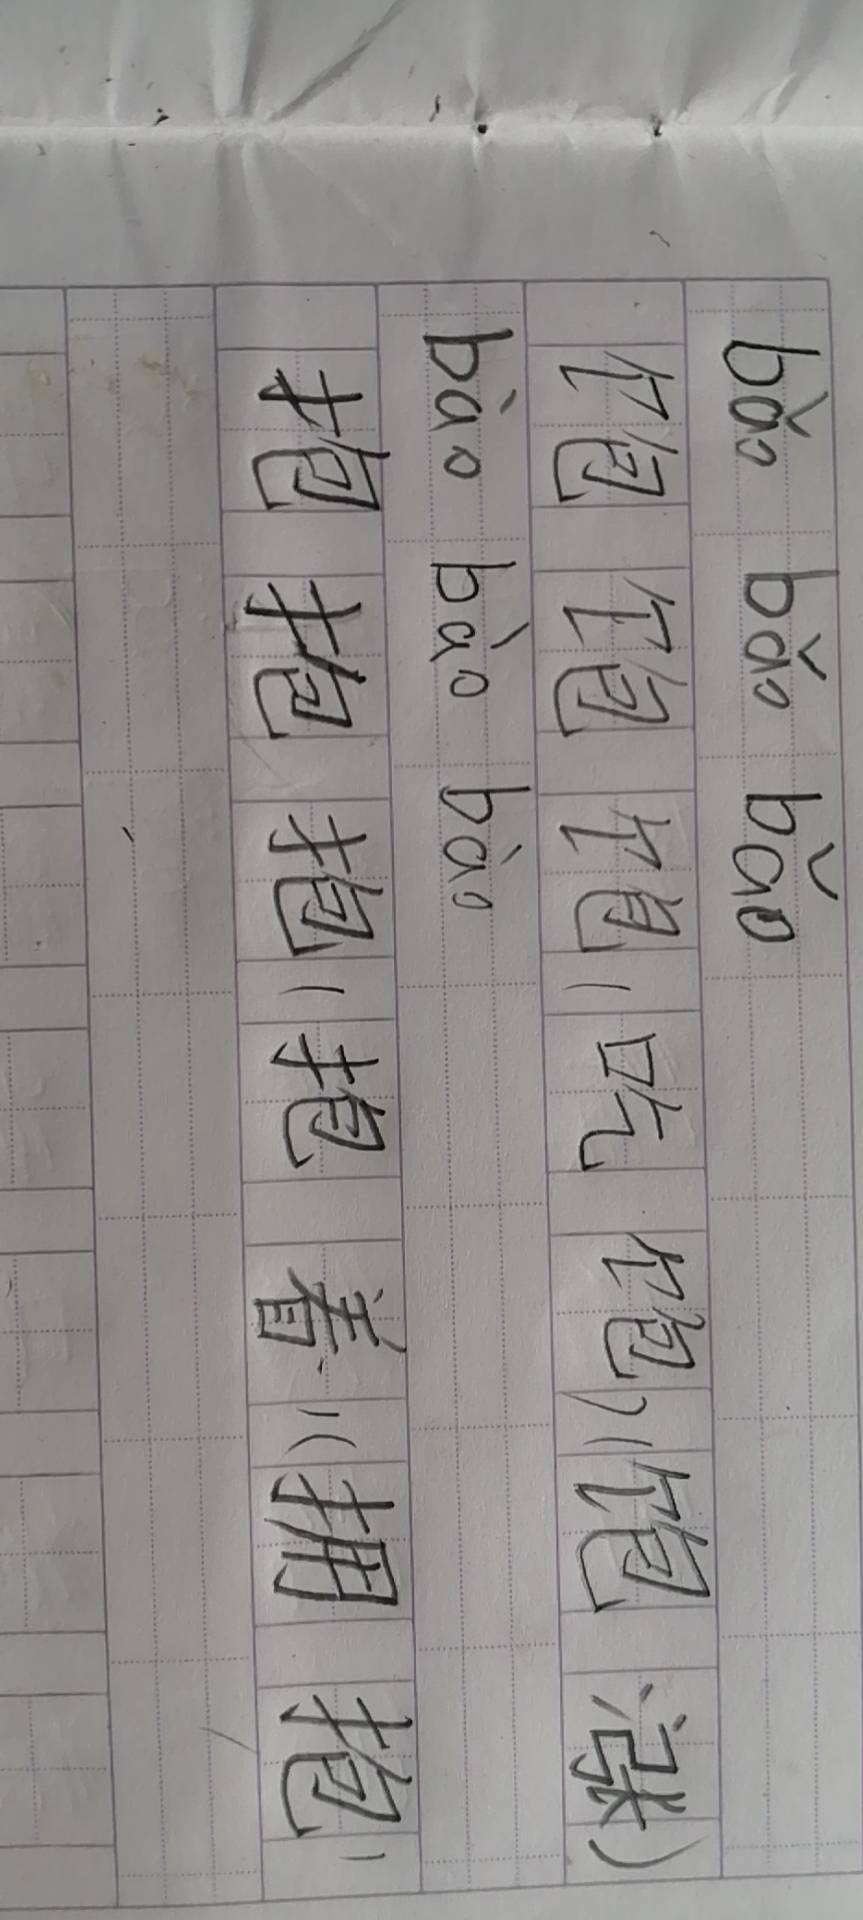 bǎo bǎo bǎo
饱饱饱(吃饱)(饱涨)
bào bào bào
抱抱抱(抱着)(拥抱)